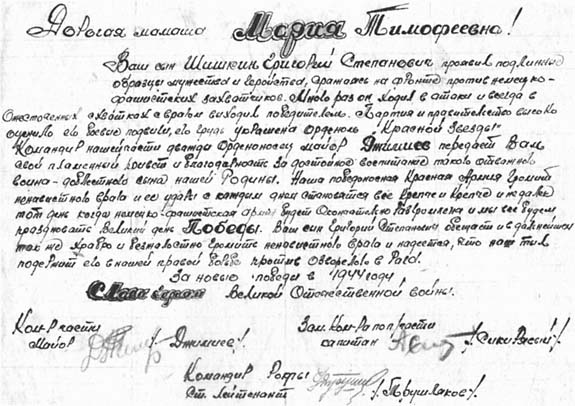 Дорогая мамаша Мария Тимофеевна!
Ваш сын Шишкин Григорий Степанович проявил подлинные
образцы мужества и геройства, сражаясь на фронте против немецко-
фашистских захватчиков. Много раз он ходил в атаки и всегда в
ожесточенных схватках с врагом выходил победителем. Партия и правительство высоко
оценило его боевые подвиги, его грудь украшена Орденом "Красной Звезды"
Командир нашей части дважды Орденоносец майор Джилиев передаёт Вам
свой пламенный привет и благодарность за достойное воспитание такого отважного
воина - доблестного сына нашей Родины. Наша победоносная Красная Армия громит
ненавистного врага и её удары с каждым днем становятся все крепче и крепче и недалек
тот день когда немецко-фашистская армия будет окончательно разгромлена и мы все будем
праздновать Великий день Победы. Ваш сын Григорий Степанович обещает и в дальнейшем
так же храбро и безжалостно громить ненавистного врага и надеется, что наш тыл
поддержит его в нашей правой борьбе против
За новые победы в 1944 году
Слава героям Великой Отечественной войны.
Ком-р части
майор /Джилиев/.
Зам. Ком-ра по п/части
капитан
Командир Роты
Ст. Лейтенант